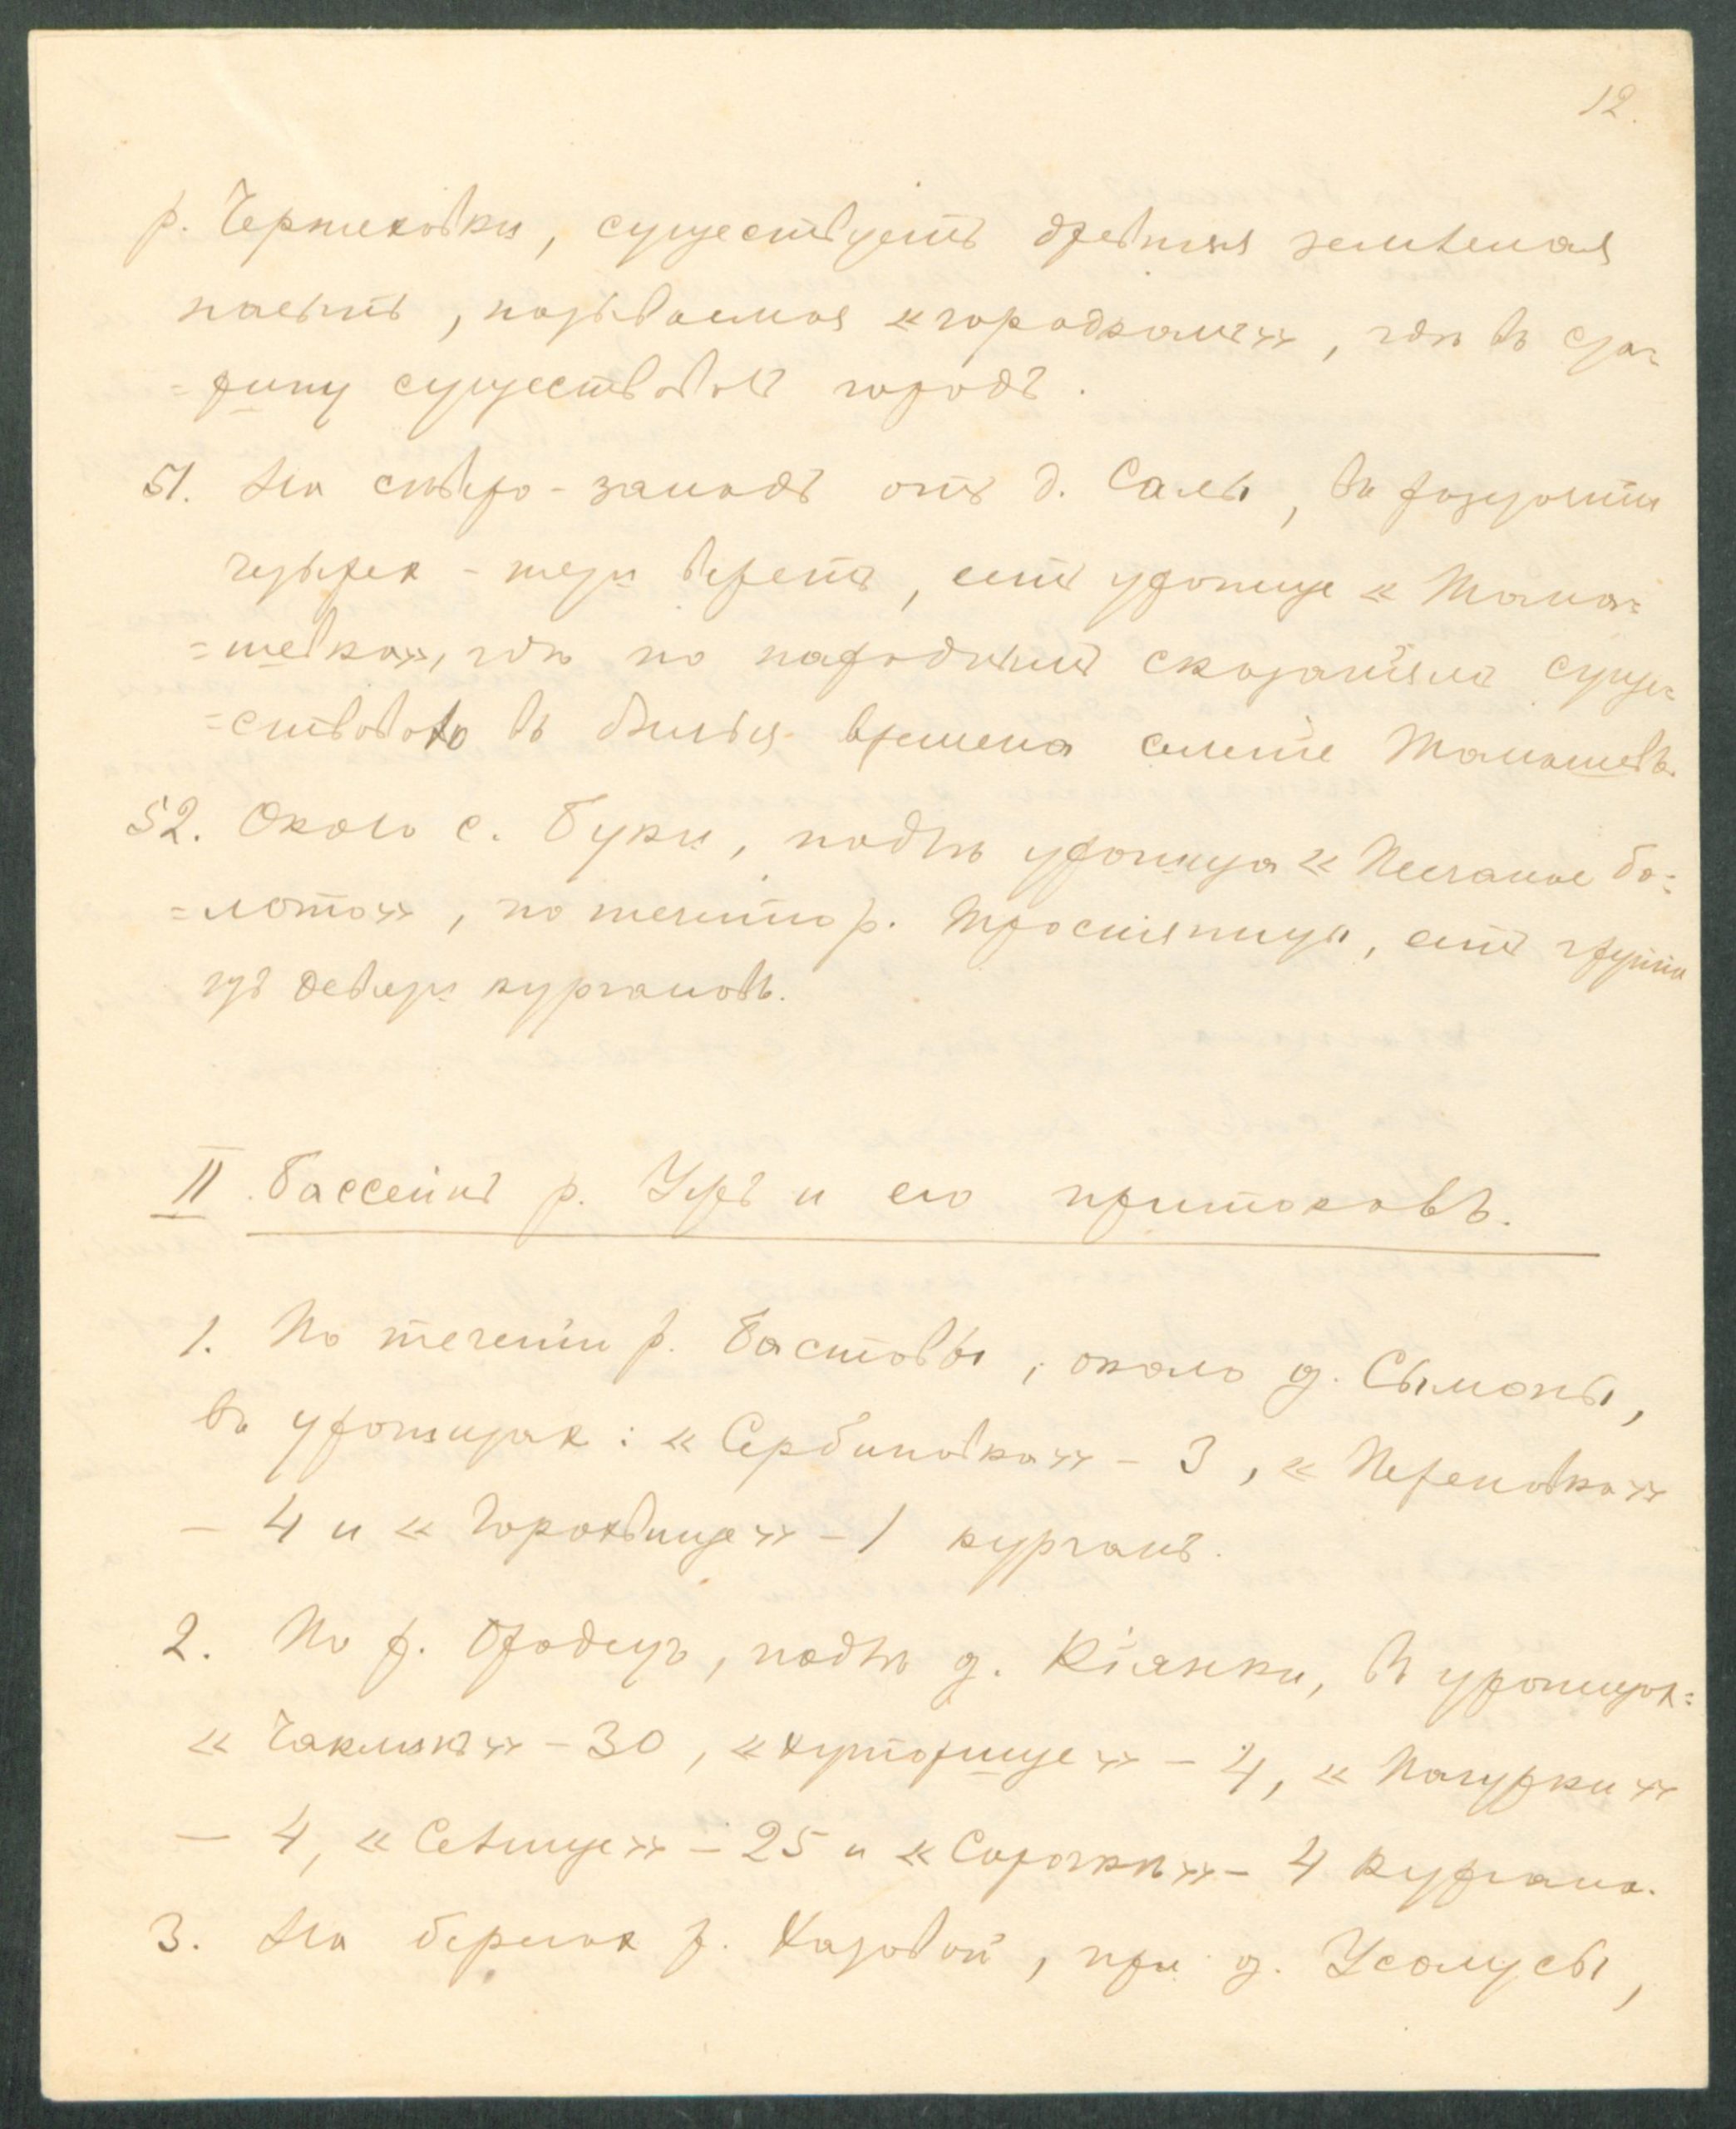 12.
р. Черниховки, существуетъ древняя земляная
насыпь, называемая «городкомъ», гдѣ въ ста=
=рину существовалъ городъ.
51. На сѣверо-западъ отъ д. Салы, въ разстоянiи
четырех - пяти верстъ, есть урочище «Тома=
=шевка», гдѣ по народнымъ сказанiямъ суще=
=ствовало въ былыя времена селенiе Томашевка.
52. Около с. Буки, подлѣ урочища «Песчаное бо=
=лото», по теченiю р. Тростяницы, есть группа
изъ девяти кургановъ.
II. Бассейнъ р. Ужъ и его притоковъ.
1. По теченiи р. Бастовы, около д. Сымоны,
въ урочищах: «Сербиновка» - 3, «Переновка»
- 4 и «Гороховище» - 1 курганъ.
2. По р. Бродецъ, подлѣ д. Кiянки, въ урочищах:
«Чакликъ» - 30, «Хуторище» - 4, «Пагурки»
- 4, «Селище» - 25 и «Сорочки» - 4 кургана.
3. На берегах р. Хазовой, при д. Усолусы,